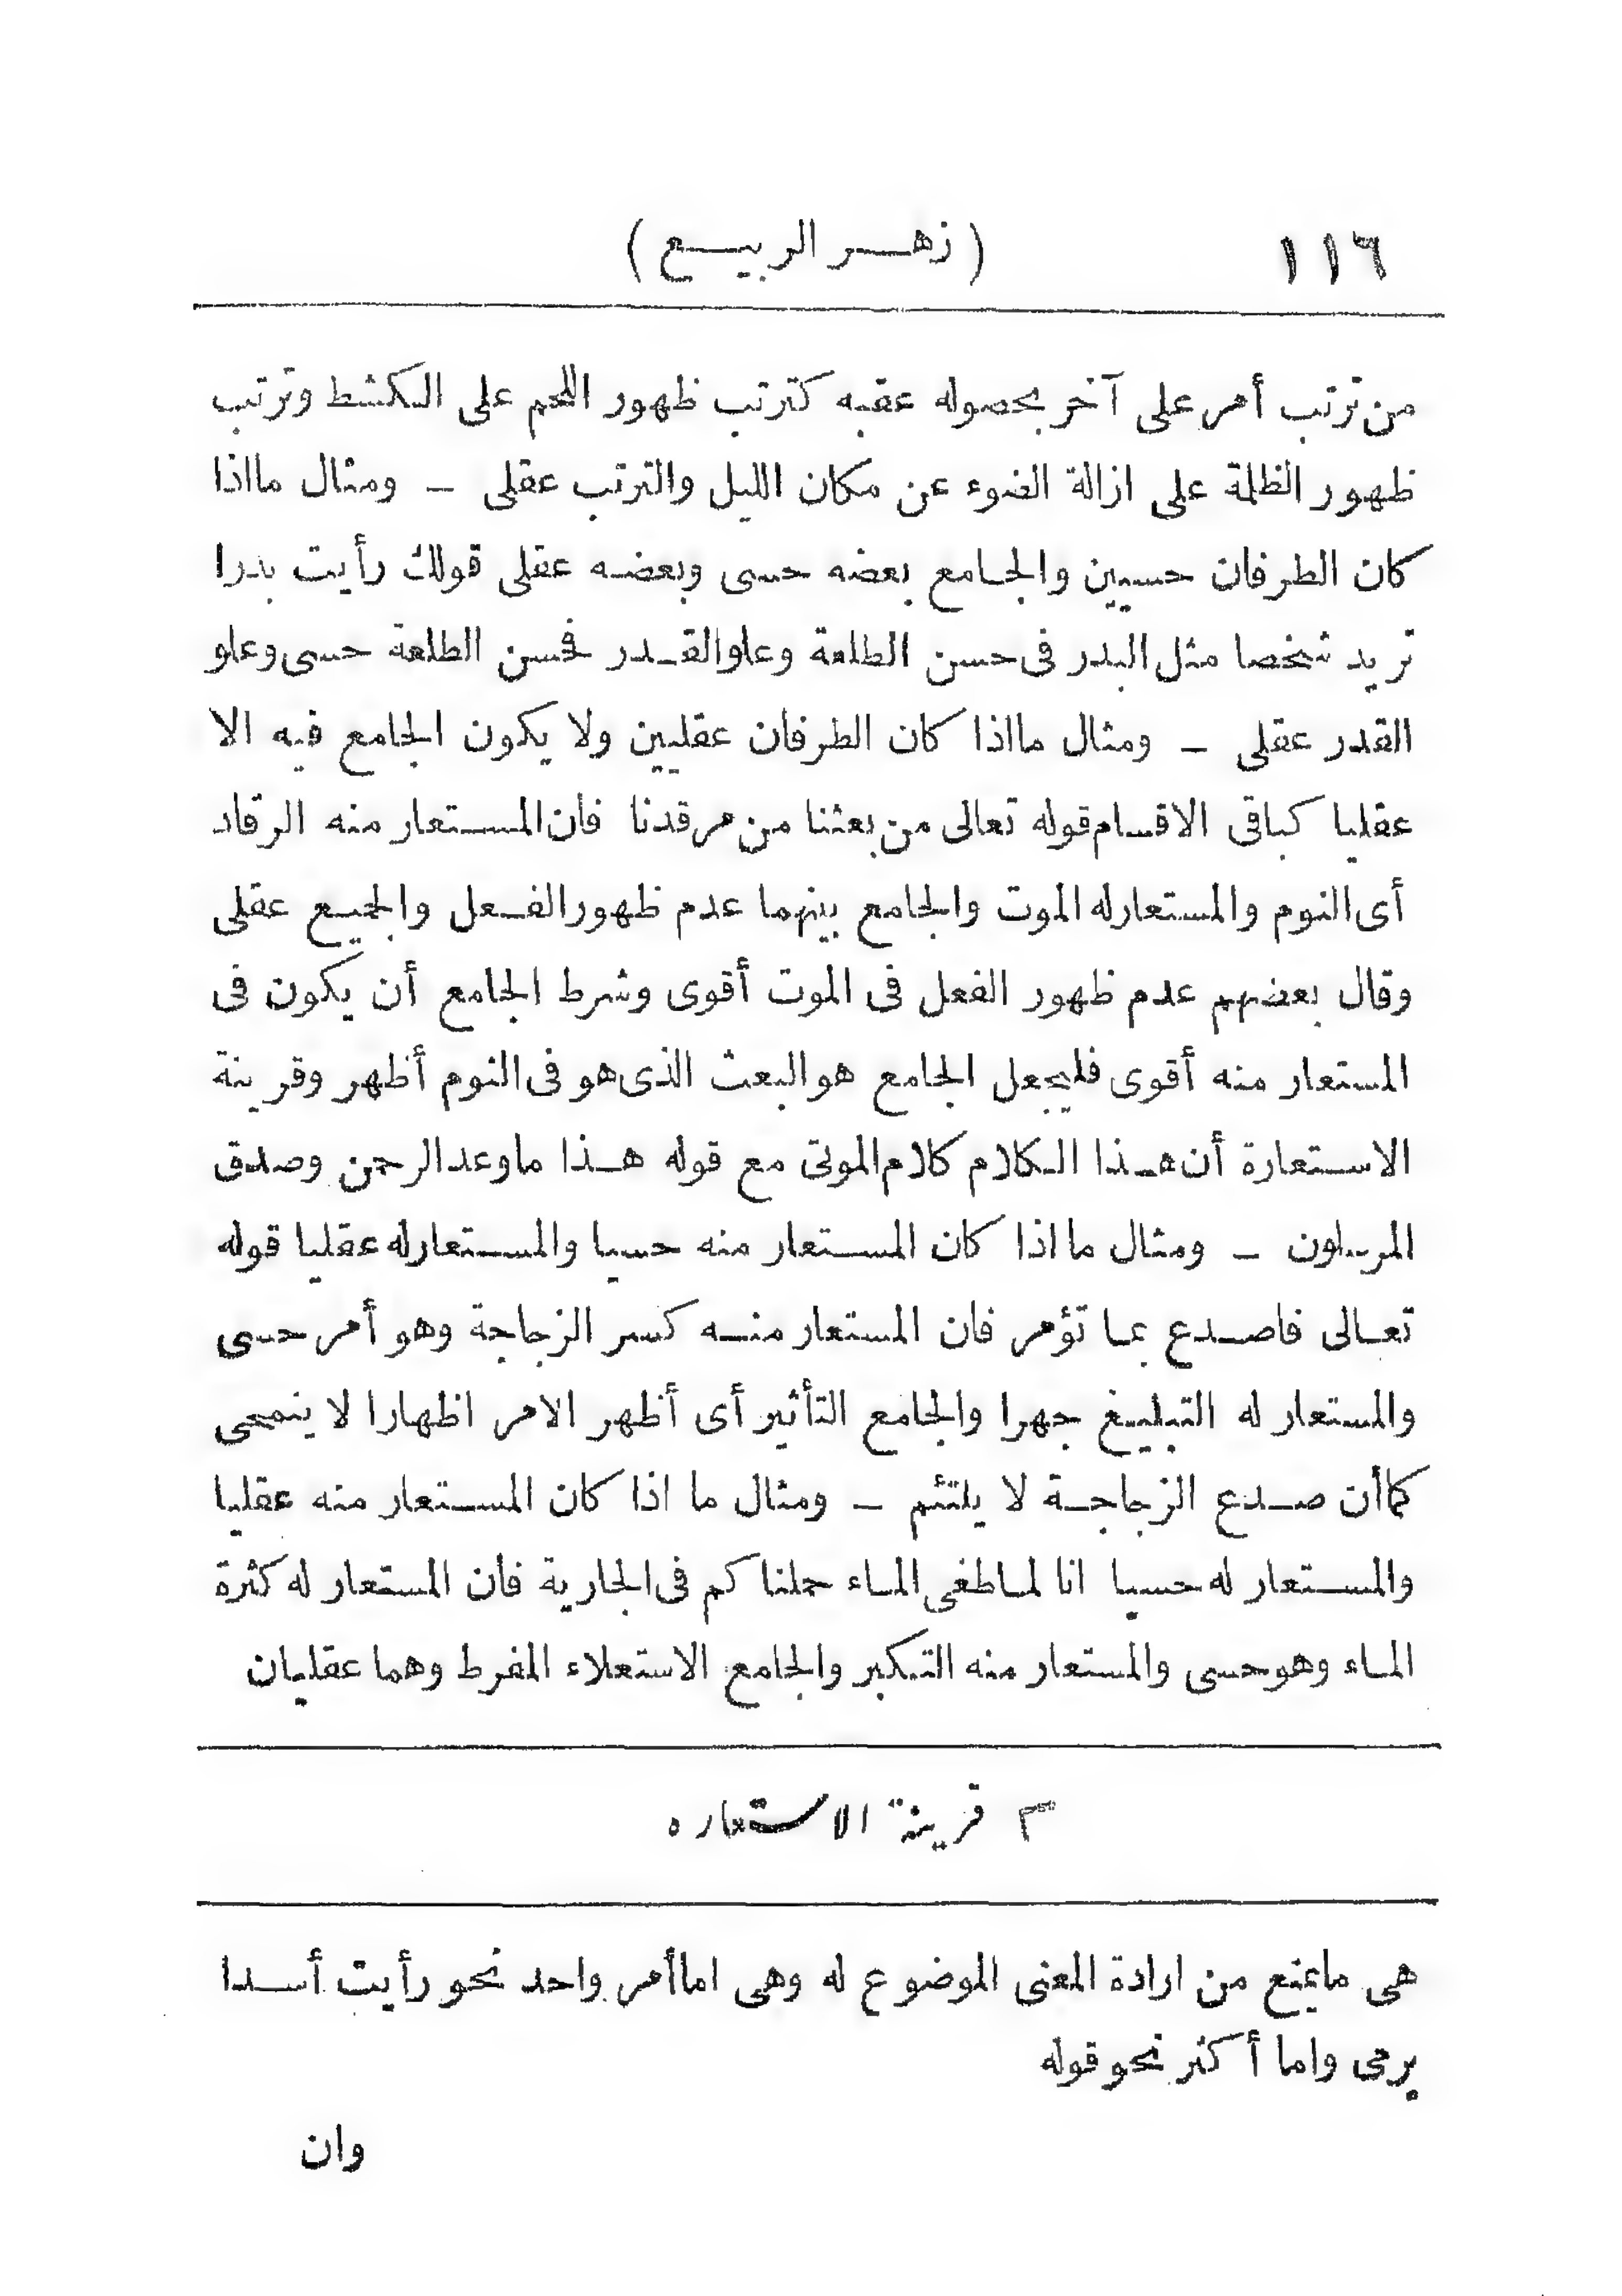 ١١٦ (زهر الربيع)
من ترتب أمر على آخر بحصوله عقبه كترتب ظهور اللحم على الكشط وترتب
ظهور الظلمة على ازالة الضوء عن مكان الليل والترتب عقلى - ومثال مااذا
كان الطرفان حسيين والجامع بعضه حسى وبعضه عقلى قولك رأيت بدرا
تريد شخصا مثل البدر فى حسن الطلعة وعلو القدر فحسن الطلعة حسى وعلو
القدر عقلى - ومثال مااذا كان الطرفان عقليين ولا يكون الجامع فيه الا
عقليا كباقى الاقسام قوله تعالى من بعثنا من مرقدنا فان المستعار منه الرقاد
أى النوم والمستعارله الموت والجامع بينهما عدم ظهور الفعل والجميع عقلى
وقال بعضهم عدم ظهور الفعل فى الموت أقوى وشرط الجامع أن يكون فى
المستعار منه أقوى فليجعل الجامع هو البعث الذى هو فى النوم أظهر وقرينة
الاستعارة أن هذا الكلام كلام الموتى مع قوله هذا ماوعد الرحمن وصدق
المرسلون - ومثال ما اذا كان المستعار منه حسيا والمستعارله عقليا قوله
تعالى فاصدع بما تؤمر فان المستعار منه كسر الزجاجة وهو أمر حسى
والمستعار له التبليغ جهرا والجامع التأثير أى أظهر الامر اظهارا لا ينمحى
كماأن صدع الزجاجة لا يلتئم - ومثال ما اذا كان المستعار منه عقليا
والمستعار له حسيا انا لما طغى الماء حملنا كم فى الجارية فان المستعار له كثرة
الماء وهو حسى والمستعار منه التكبر والجامع الاستعلاء المفرط وهما عقليان
٣ قرينة الاستعاره
هى مايمنع من ارادة المعنى الموضوع له وهى اماأمر واحد نحو رأيت أسدا
يرمى واما أكثر نحو قوله
وان